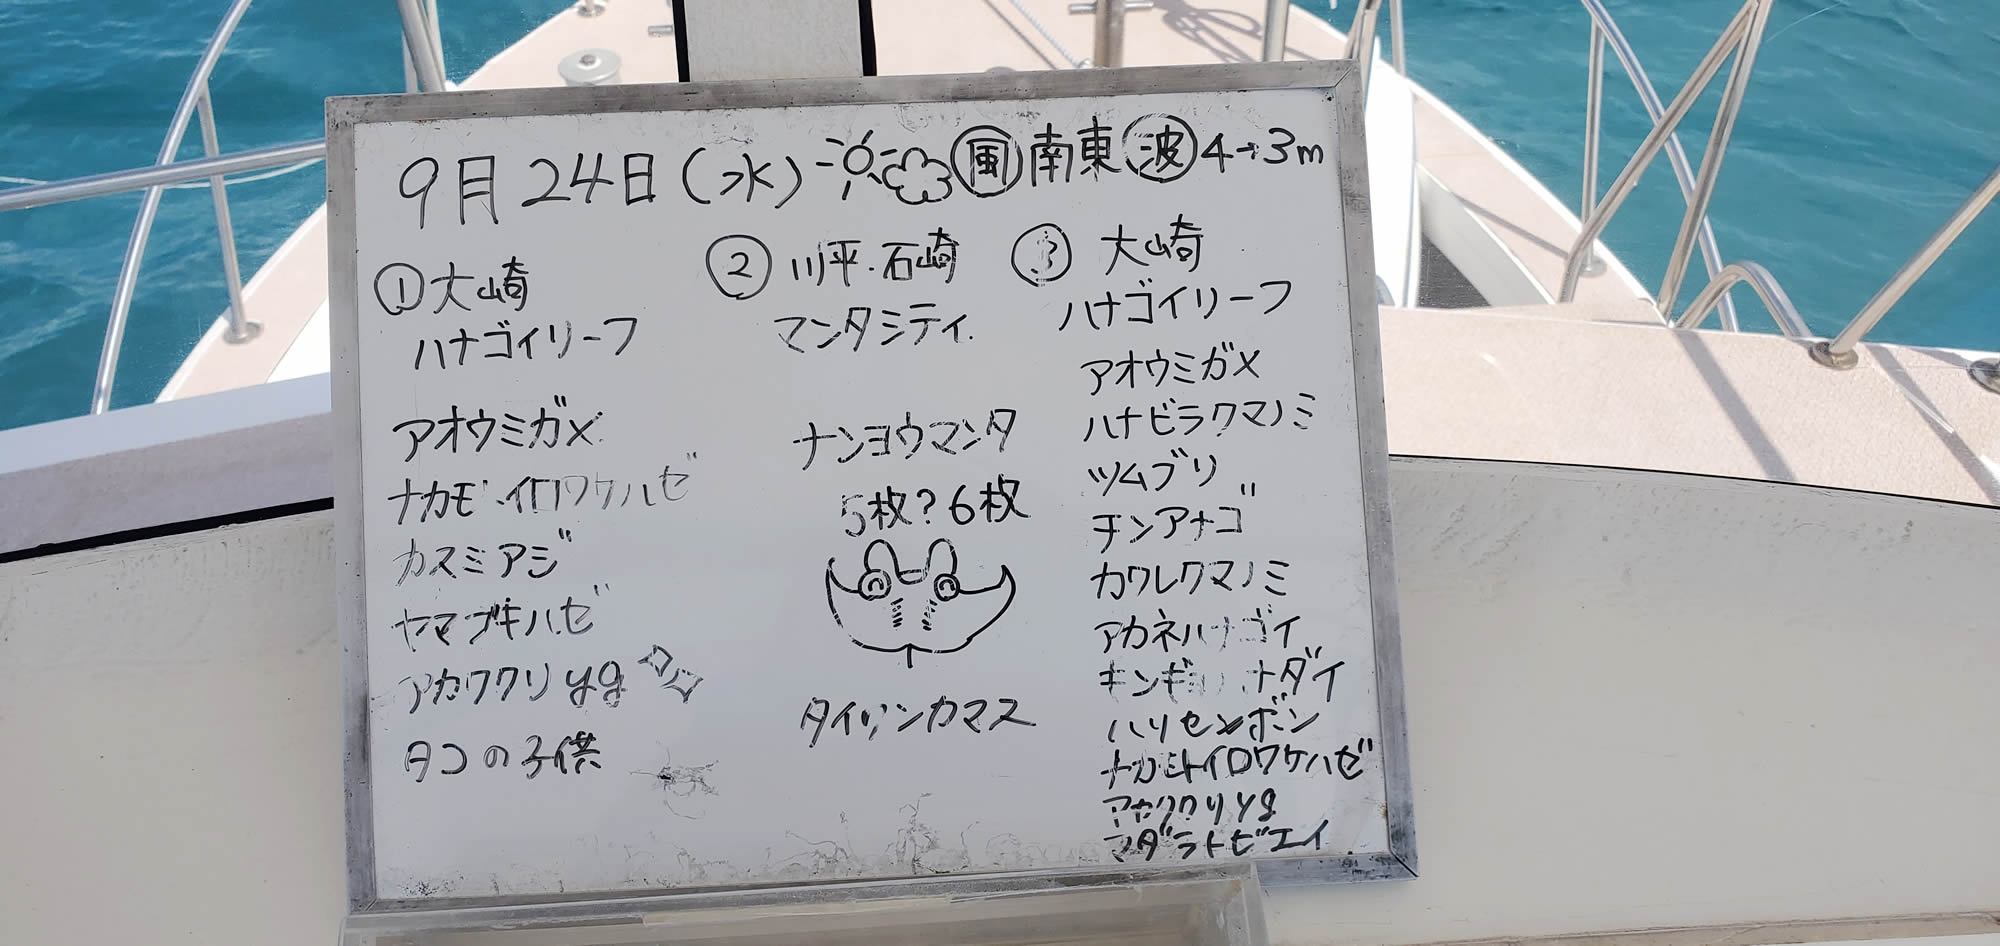 9月24日(水) 風 南東 波 4→3m
① 大崎
ハナゴイリーフ
アオウミガメ
ナカモトイロワケハゼ
カスミアジ
ヤマブキハゼ
アカククリyg
タコの子供
② 川平.石崎
マンタシティ.
ナンヨウマンタ
5枚?6枚
タイワンカマス
③ 大崎
ハナゴイリーフ
アオウミガメ
ハナビラクマノミ
ツムブリ
チンアナゴ
カクレクマノミ
アカネハナゴイ
キンギョハナダイ
ハリセンボン
ナカモトイロワケハゼ
アカククリyg
マダラトビエイ